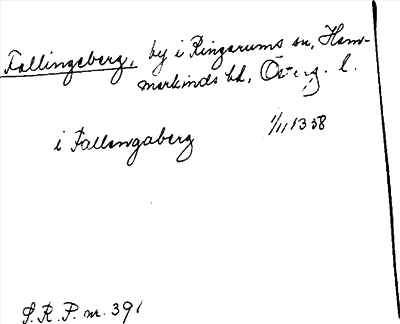 Fallingeberg, by i Ringarums sn, Ham-
markinds hd, Österg. l.
i Fallingaberg 1/11 1358
S.R.P. nr. 391